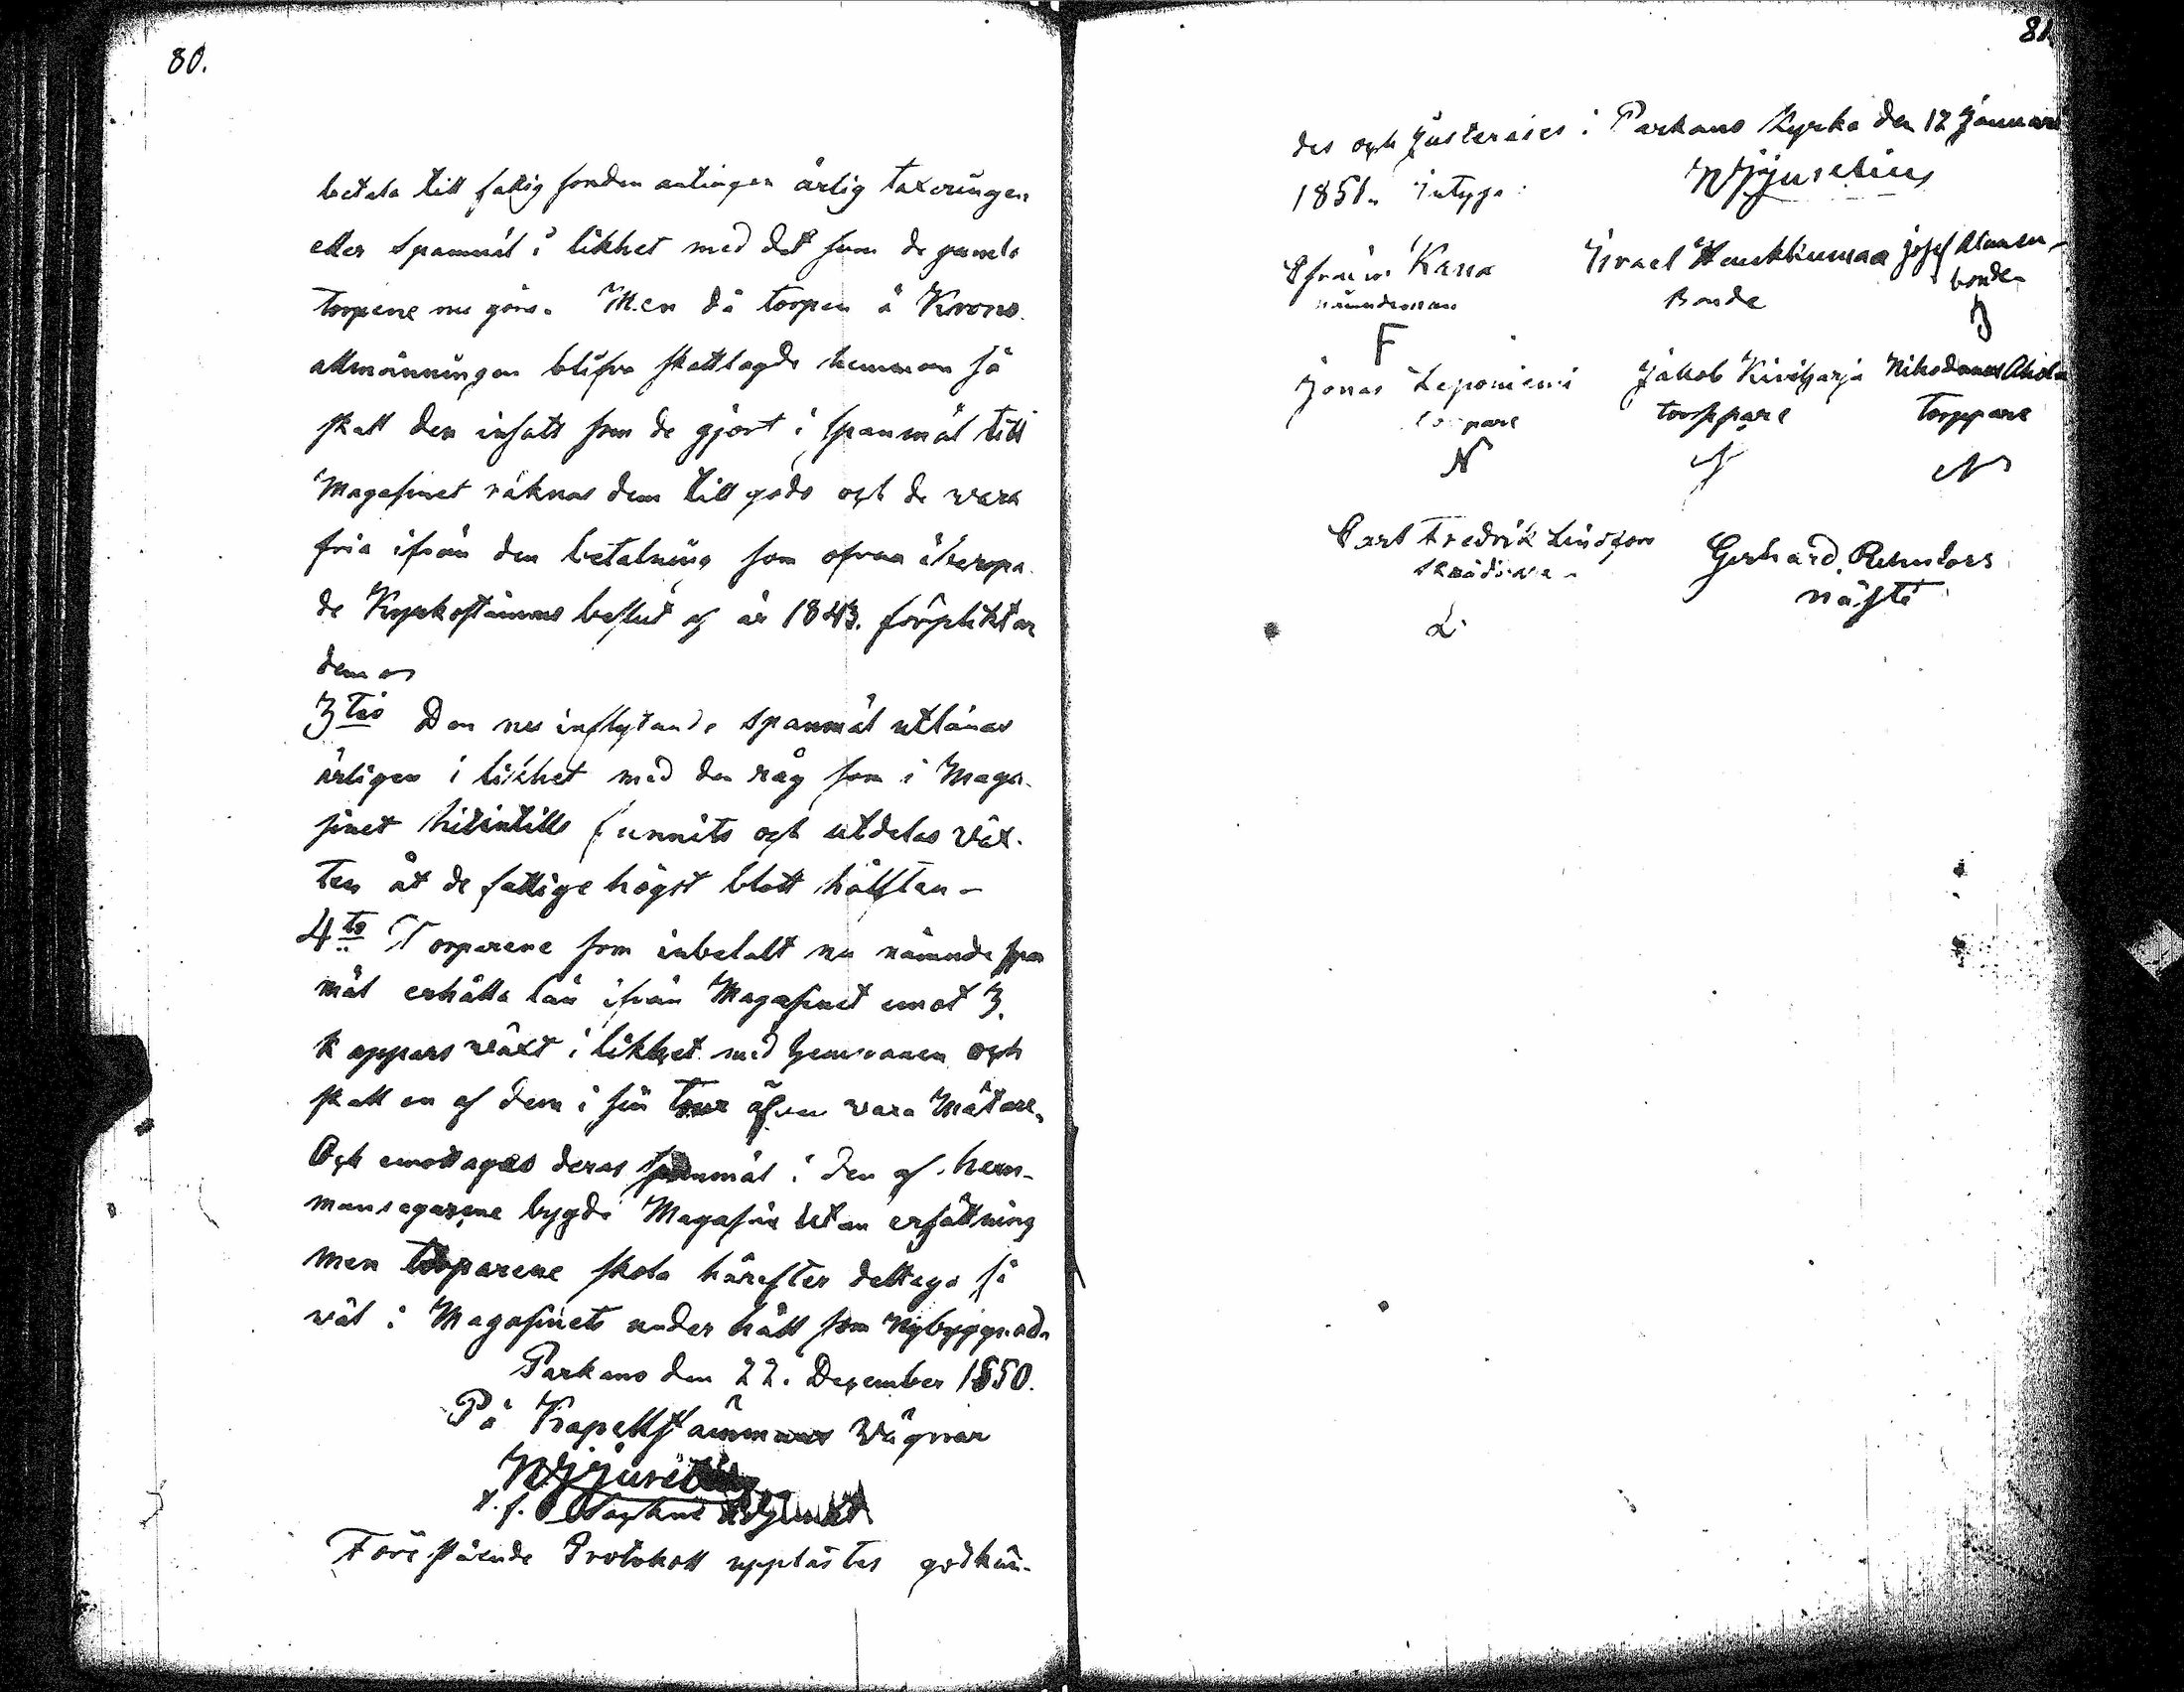 80.
betala till fattig fonden antingen årlig taxeringen
eller Spanmål i likhet med det som de gamla
torpene nu göra. Men då torpen å Krono
allmänningen blifva skattlagde hemman så
skall den insatts som de gjort i Spanmål till
Magasinet räknas dem till godo och de vara
fria ifrån den betalning som ofvan åberopa
de Kyrkostämmo beslut af år 1843. förpliktar
dem
3tio Den nu inflytande spanmål utlånas
årligen i likhet med den råg som i Maga-
sinet hitintills funnits och utdelas väx-
ten åt de fattige högst blott hälften
4to Torparene som inbetalt nu nämnde span
mål erhålla lån ifrån Magasinet emot 3.
kappars växt i likhet med hemmanen och
skall en af dem i sin tour äfven vara Mätare,
Och emottages deras spanmål i den af hem-
mansegarene bygde Magasin utan ersättning
men torparene skola härefter deltaga så
väl i Magasinets underhåll som Nybyggnad.
Parkano den 22. December 1850.
På Kapellstämmans vägnar
t.f.
Förestående Protokoll upplästes godkän-
81.
des och Justerades i Parkano Kyrka den 12 Januari
1851. intyga
Efraim Kana Israel Haukkumaa Josef Alanen
nämndeman Bonde bonde
F J
Jonas Leponiemi Jakob Kiviharja Nikodemus Ahola
torpare torppare Torppare
N N
Carl Fredrik Lindfors Gerhard
skräddare
L